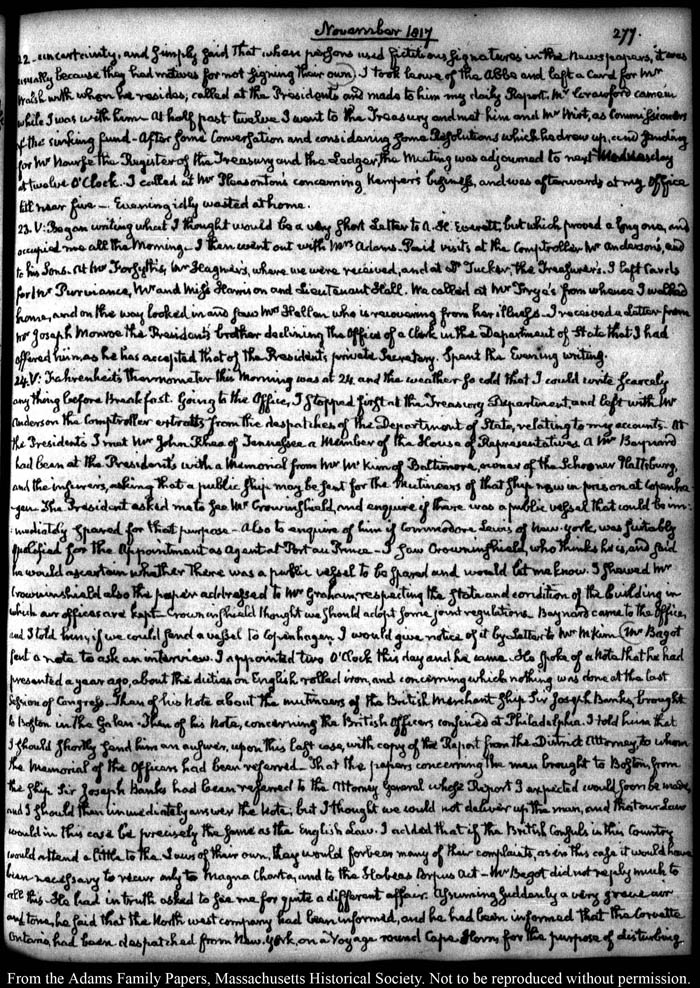 November 1817
277.
22 uncertainty, and simply said that when persons used fictitious signatures in the Newspapers, it was
usually because they had motives for not signing their own. I took leave of the Abbé and left a Card for Mr
Walsh with whom he resides; called at the President's and made to him my daily Report. Mr Crawford came in
while I was with him. At half past twelve I went to the Treasury and met him and Mr Wirt, as Commissioners
of the sinking fund. After some Conversation and considering some Resolutions which he drew up, and sending
for Mr Nourse the Register of the Treasury and the Ledger, the Meeting was adjourned to next Wednesday
at twelve O'Clock. I called at Mr Pleasonton's concerning Kemper's business, and was afterwards at my Office
till near five. Evening idly wasted at home.
23. V: Began writing what I thought would be a very short Letter to A. H. Everett, but which proved a long one, and
occupied me all the Morning. I then went out with Mrs Adams. Paid visits at the Comptroller Mr Anderson's, and
to his Sons. At Mr Forsyth's, Mr Hagner's, where we were received, and at Dr Tucker, the Treasurer's. I left Cards
for Mr Purviance, Mr and Miss Harrison and Lieutenant Hall. We called at Mr Frye's from whence I walked
home, and on the way looked in and saw Mrs Hellen who is recovering from her illness. I received a Letter from
Mr Joseph Monroe the President's brother declining the Office of a Clerk in the Department of State that I had
offered him as he has accepted that of the President's private Secretary. Spent the Evening writing.
24. V: Fahrenheit's thermometer this Morning was at 24 and the weather so cold that I could write scarcely
any thing before Breakfast. Going to the Office, I stopped first at the Treasury Department, and left with Mr
Anderson the Comptroller extracts from the despatches of the Department of State, relating to my accounts. At
the President's I met Mr John Rhea of Tennessee a Member of the House of Representatives. A Mr Baynard
had been at the President's with a Memorial from Mr McKim of Baltimore, owner of the Schooner Plattsburg,
and the insurers, asking that a public ship may be sent for the Mutineers of that ship now in prison at Copenha-
gen. The President asked me to see Mr Crowninshield, and enquire if there was a public vessel that could be im-
mediately spared for that purpose. Also to enquire of him if Commodore Lewis of New-York, was suitably
qualified for the Appointment as Agent at Port au Prince. I saw Crowninshield, who thinks he is, and said
he would ascertain whether there was a public vessel to be spared and would let me know. I shewed Mr
Crowninshield also the paper addressed to Mr Graham, respecting the state and condition of the building in
which our offices are kept. Crowninshield thought we should adopt some joint regulations. Baynard came to the Office,
and I told him, if we could send a vessel to Copenhagen, I would give notice of it by Letter to Mr McKim. Mr Bagot
sent a note to ask an interview. I appointed two O'Clock this day and he came. He spoke of a Note that he had
presented a year ago, about the duties on English rolled iron, and concerning which nothing was done at the last
Session of Congress. Then of his Note about the mutineers of the British Merchant ship Sir Joseph Banks, brought
to Boston in the Galen. Then of his Note, concerning the British Officers confined at Philadelphia. I told him that
I should shortly send him an answer, upon this last case, with copy of the Report from the District Attorney, to whom
the Memorial of the Officers had been referred. That the papers concerning the men brought to Boston, from
the ship Sir Joseph Banks had been referred to the Attorney General whose Report I expected would soon be made,
and I should then immediately answer the Note; but I thought we could not deliver up the man, and that our Law
would in this case be precisely the same as the English Law. I added that if the British Consuls in this Country
would attend a little to the Laws of their own, they would forbear many of their complaints, as in this case it would have
been necessary to recur only to Magna Charta, and to the Habeas Corpus Act. Mr Bagot did not reply much to
all this. He had in truth asked to see me for quite a different affair. Assuming suddenly a very grave air
and tone, he said that the North west company had been informed, and he had been informed that the Corvette
Ontario, had been despatched from New-York, on a Voyage round Cape Horn, for the purpose of disturbing
From the Adams Family Papers, Massachusetts Historical Society. Not to be reproduced without permission.